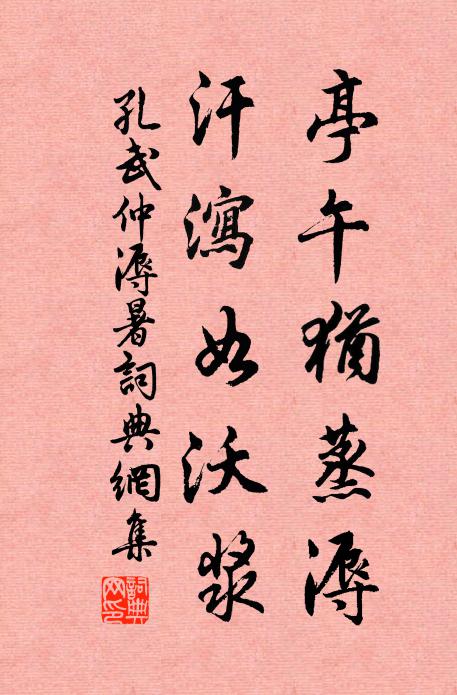 亭午猶蒸溽
汗瀉如沃漿
孔武仲溽暑詞典網集
詞典網印